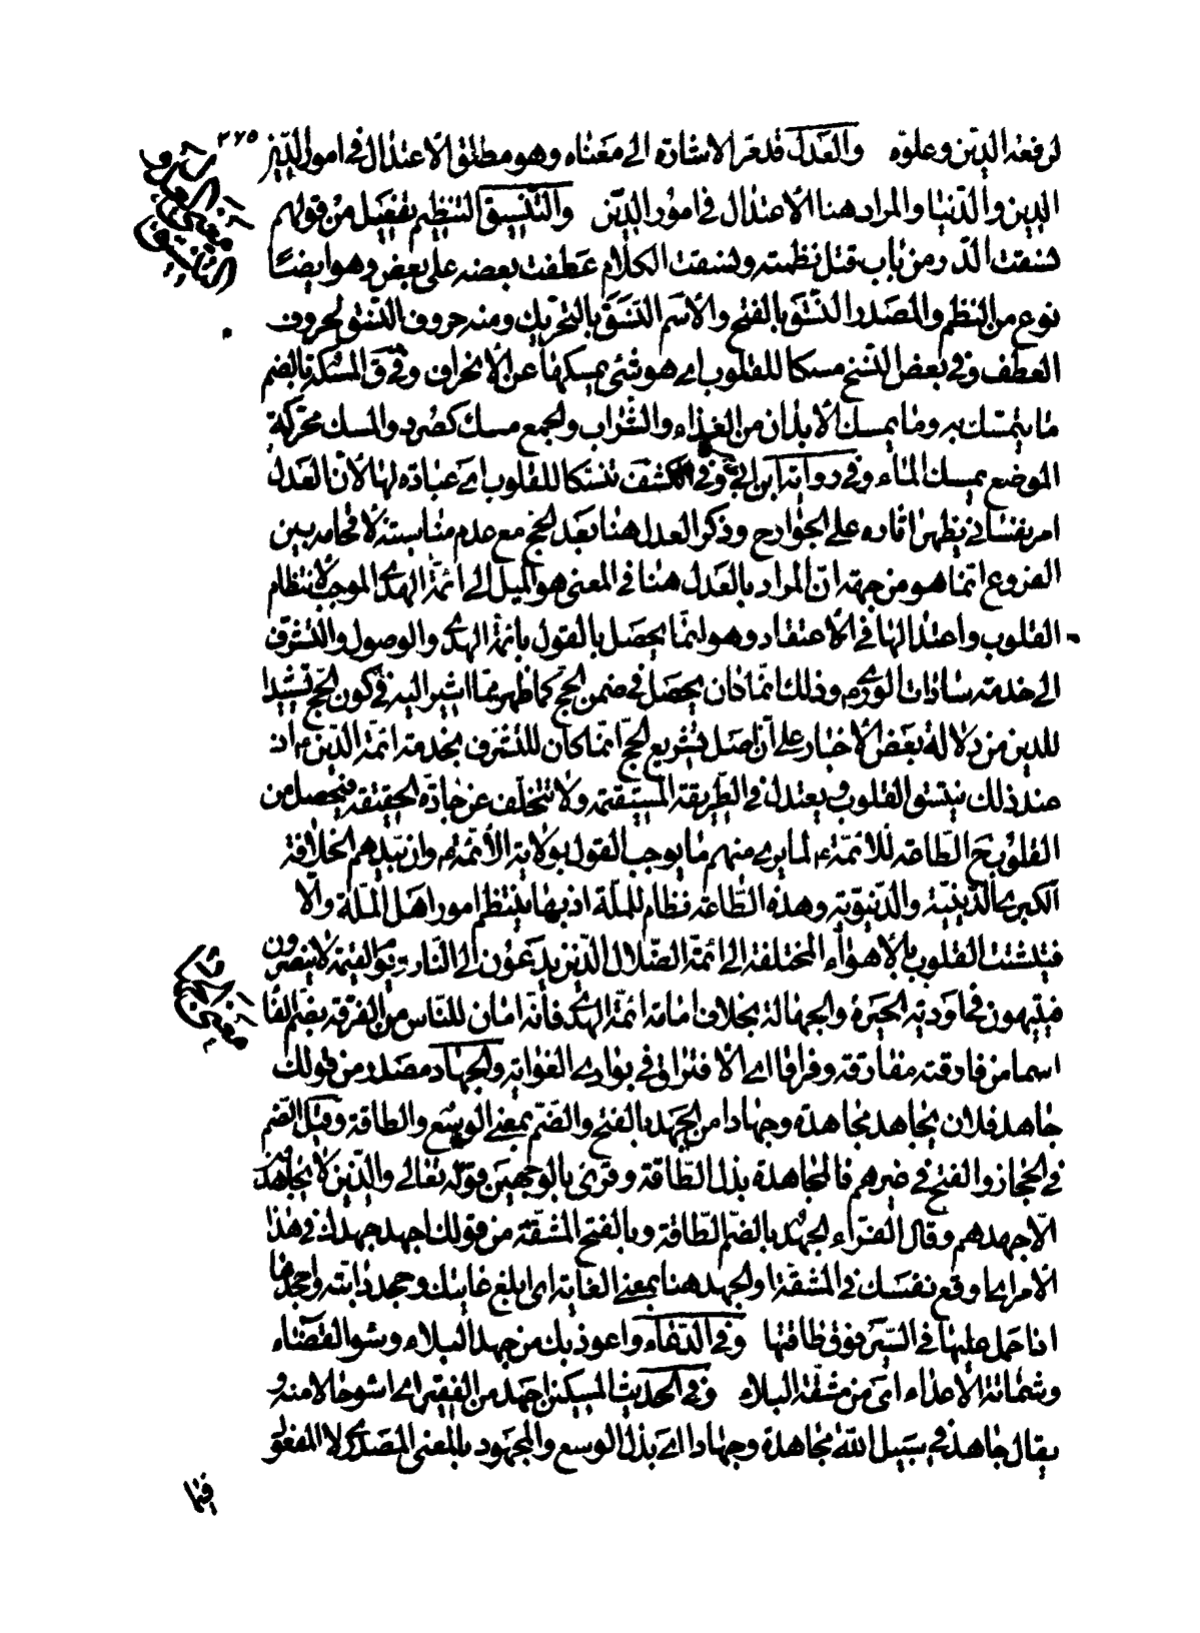 ٢٦٥
لرفعة الدين وعلوّه والعدل قد مرّ الاشارة الى معناه وهو مطلق الاعتدال فى امور
الدين والدنيا والمراد هنا الاعتدال فى امور الدّين والتّنسيق التنظيم تفعيل من قولهم
نسقت الدّر من باب قتل نظمته ونسقت الكلام عطفت بعضه على بعض وهو ايضًا
نوع من النظم والمصدر النّسق بالفتح والاسم النّسق بالتحريك ومنه حروف النّسق لحروف
العطف وفى بعض النّسخ مسكا للقلوب اى هو شئ يمسكها عن الانحراف وفى ق المسكة بالضم
ما يتمسّك به وما يمسك الأبدان من الغذاء والشّراب والجمع مسك كصُرد والمسك محرّكة
الموضع يمسك الماء وفى رواية ابن ابى وفى الكشف تنسّكا للقلوب اى عبادة لها لأنّ العدل
امر نفسانى يظهر اثاره على الجوارح وذكر العدل هنا بعد الحج مع عدم مناسبته لاقحامه بين
الفروع انّما هو من جهة انّ المراد بالعدل هنا فى المعنى هو الميل الى ائمّة الهدى الموجب لانتظام
القلوب واعتدالها فى الاعتقاد وهو انّما يحصل بالقول بائمّة الهدى والوصول والتشرّف
الى خدمة سادات الورى وذلك انّما كان يحصل فى ضمن الحجّ كما ظهر ممّا اشير اليه فى كون الحجّ تشييدا
للدين من دلالة بعض الأخبار على انّ اصل تشريع الحجّ انّما كان للتشرّف بخدمة ائمّة الدّين اذ
عند ذلك يتّسق القلوب ويعتدل فى الطّريقة المستقيمة ولا تتخلّف عن جادّة الحقيقة فيحصل من
القلوب الطّاعة للأئمّة لما يرى منهم ما يوجب القول بولاية الأئمّة وان بيدهم الخلافة
الكبرى الدّينيّة والدّنيويّة وهذه الطّاعة نظام للملّة اذ بها ينتظم امور اهل الملّة والّا
فيتشتّت القلوب بالأهواء المختلفة الى ائمّة الضّلال الّذين يدعون الى النّار ويوم القيمة لا ينصرون
فيتيهون فى اودية الحيرة والجهالة بخلاف امامة ائمّة الهدى فانّه امان للنّاس من الفرقة بضمّ الفا
اسما من فارقته مفارقة وفراقا اى الافتراق فى بوادى الغواية والجهاد مصدر من قولك
جاهد فلان يجاهد مجاهدة وجهادا من الجهد بالفتح والضّم بمعنى الوسع والطاقة وقيل الضّم
فى الحجاز والفتح فى غيرهم فالمجاهدة بذل الطّاقة وقرئ بالوجهين قوله تعالى والّذين لا يجدون
الّا جهدهم وقال الفرّاء الجُهد بالضّم الطّاقة وبالفتح المشقّة من قولك اجهد جهدك فى هذا
الأمر اى اوقع نفسك فى المشقّة والجهد هنا بمعنى الغاية اى ابلغ غايتك وجهد دابّته واجهدها
اذا حمل عليها فى السّير فوق طاقتها وفى الدّعاء واعوذ بك من جهد البلاء وسوء القضاء
وشماتة الأعداء اى من مشقّة البلاء وفى الحديث المسكين اجهد من الفقير اى اسوء حالا منه و
يقال جاهد فى سبيل اللّه مجاهدة وجهادا اى بذل الوسع والمجهود بالمعنى المصدرى لا المفعولى
فيما